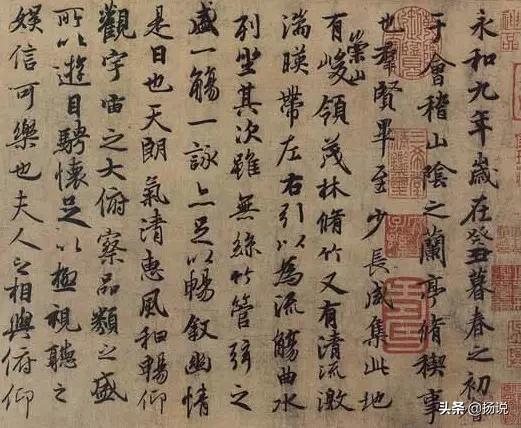 永和九年歲在癸丑暮春之初會
于會稽山陰之蘭亭脩稧事
也羣賢畢至少長咸集此地
有崇山峻領茂林脩竹又有清流激
湍暎帶左右引以為流觴曲水
列坐其次雖無絲竹管弦之
盛一觴一詠亦足以暢敘幽情
是日也天朗氣清惠風和暢仰
觀宇宙之大俯察品類之盛
所以遊目騁懷足以極視聽之
娛信可樂也夫人之相與俯仰
头条 @扬说